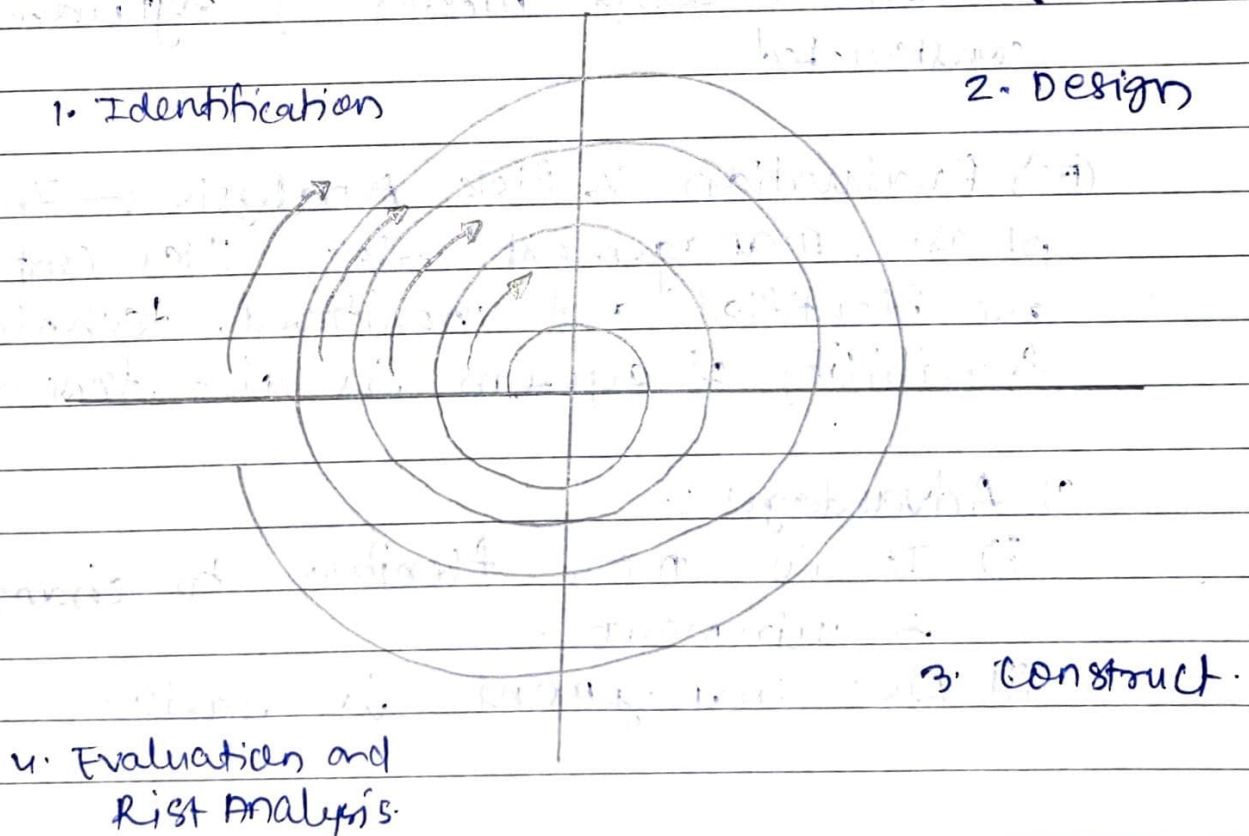 1. Identification
2. Design
3. Construct.
4. Evaluation and
Rist Analysis.